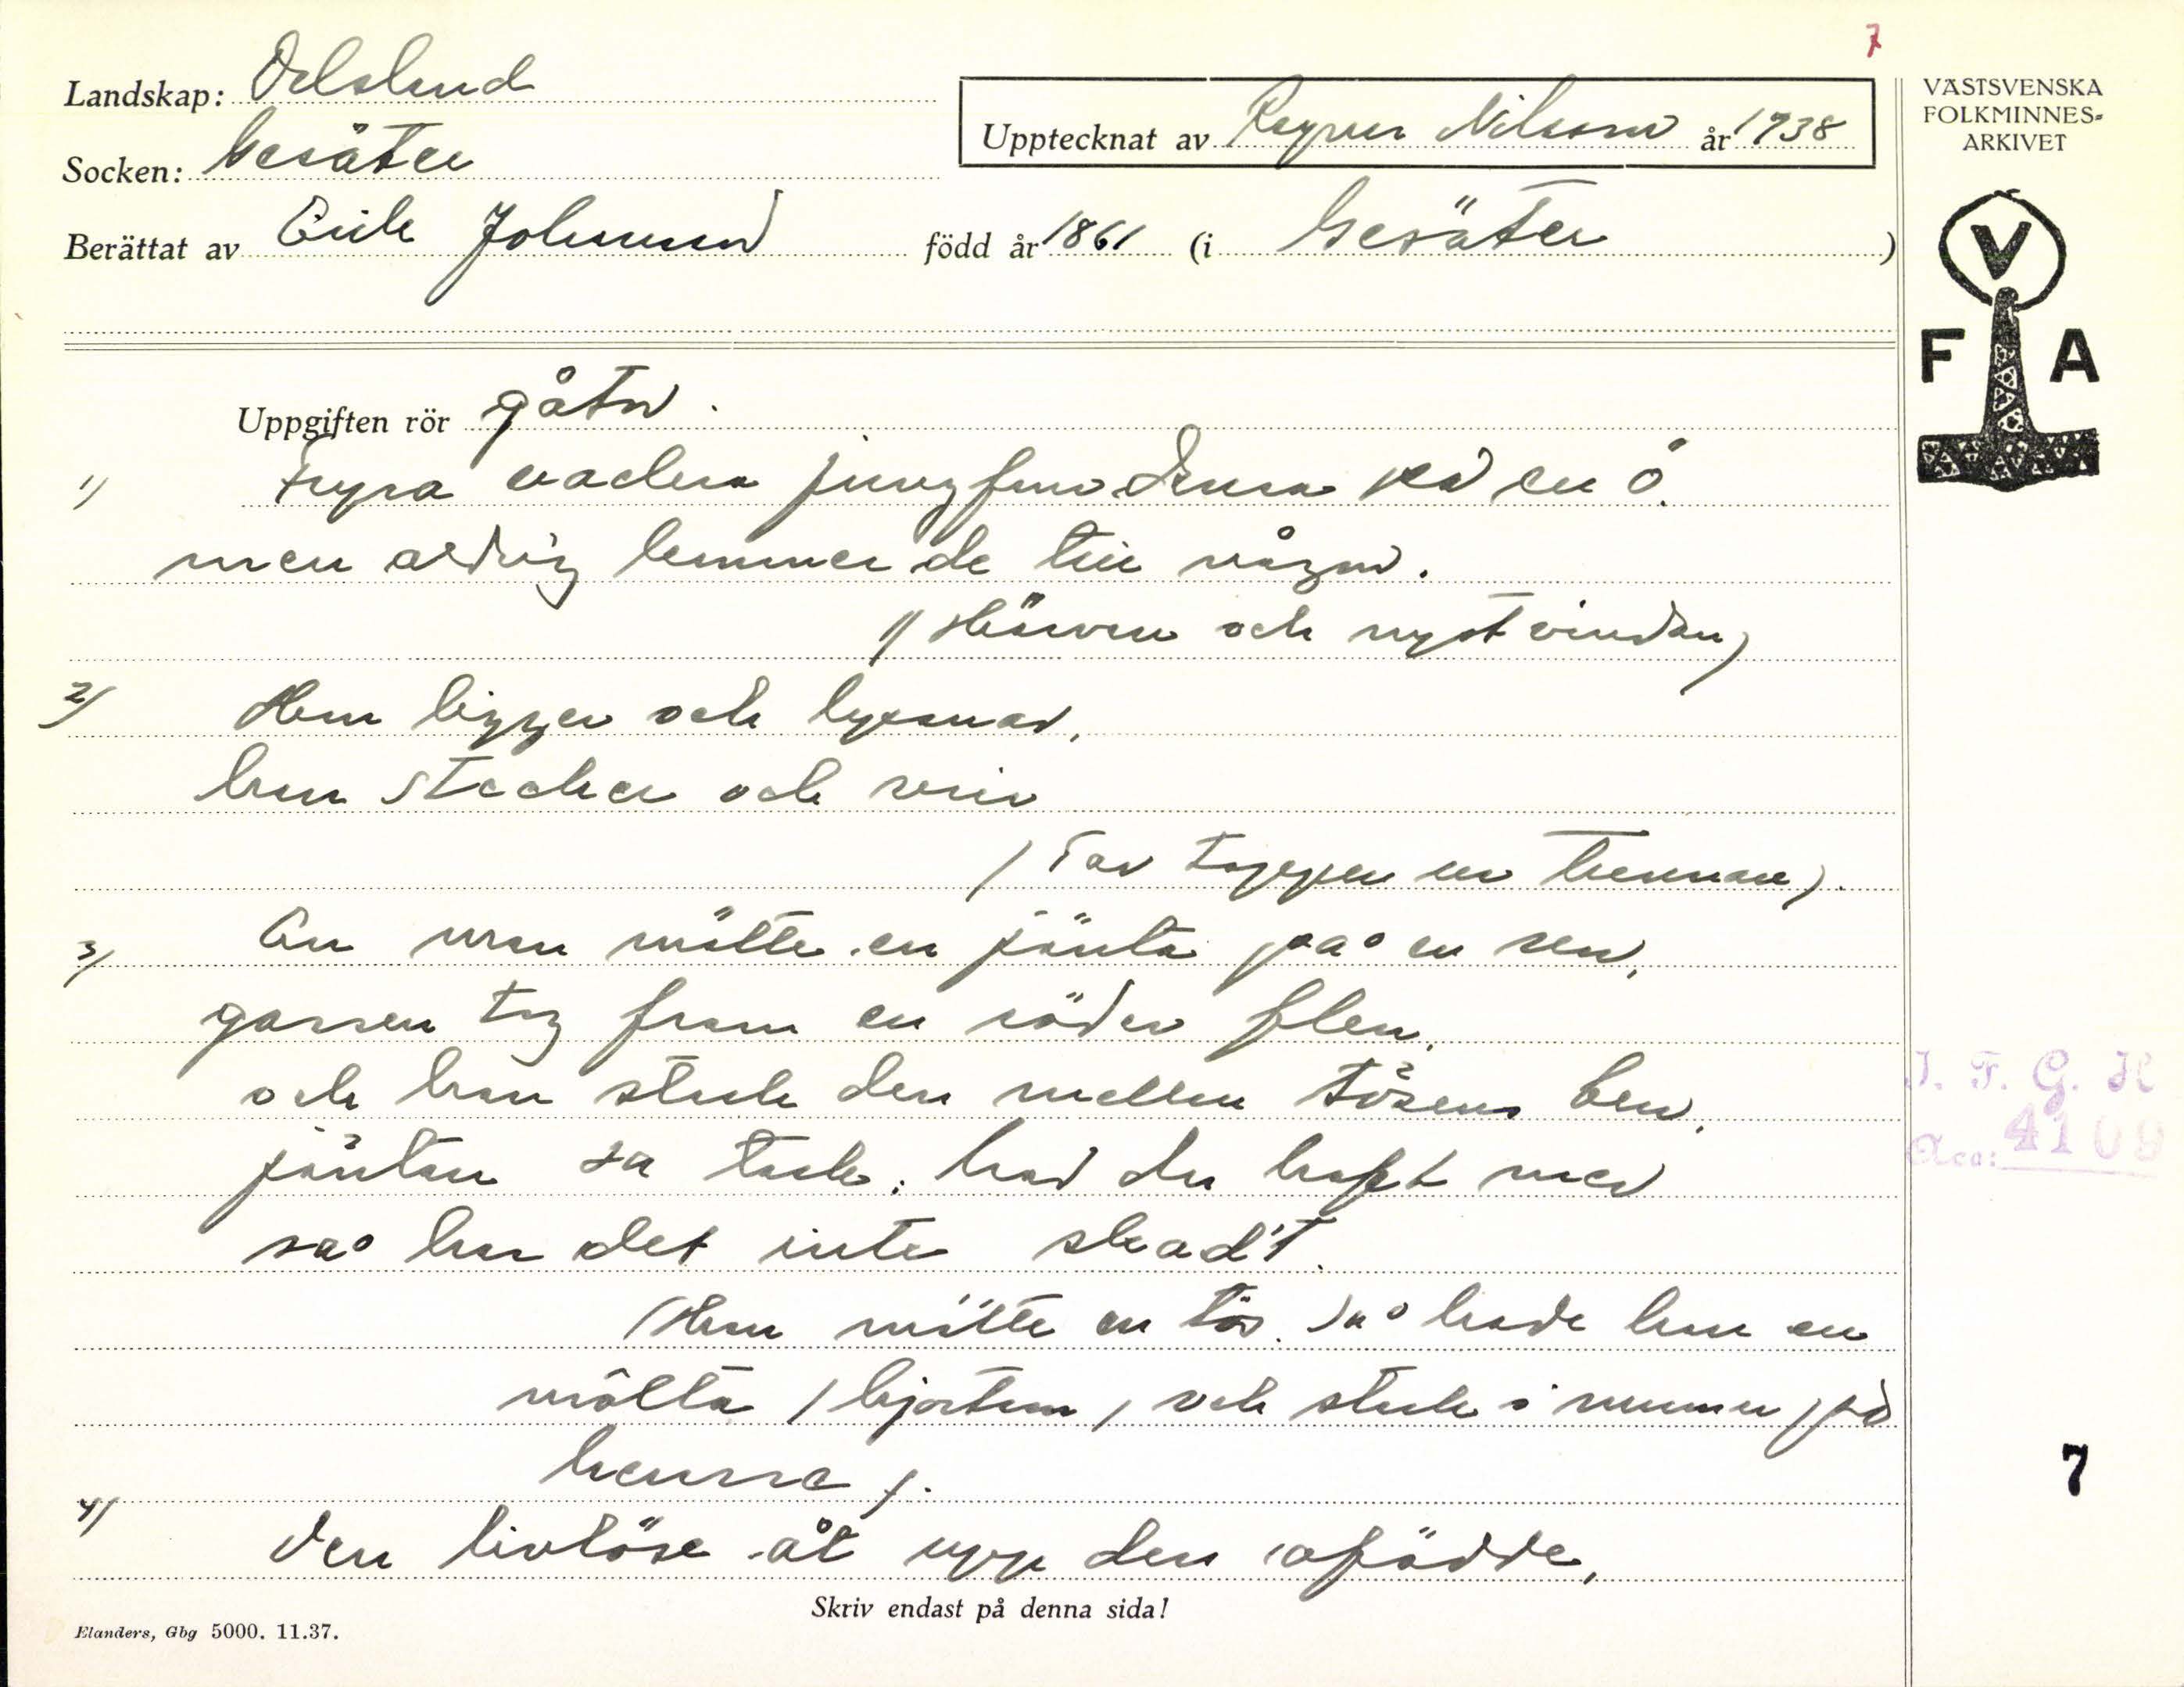 7
Landskap: Dalsland
Upptecknat av Ragnar Nilsson år 1938
VÄSTSVENSKA
FOLKMINNES-
ARKIVET
Socken: Gesäter
Berättat av Erik Johansson född år 1861 (i Gesäter)
V
F A
Uppgiften rör gåtor.
1) Fyra vackra jungfrur dansa på en ö.
men aldrig kommer de till någon.
(Härven och nystvindan)
2) Han ligger och lyssnar,
han sticker och
(Tar tuppen)
3) En man mötte en jänta på en ren,
gossen tog fram en röder flen,
och han stack den mellan tösens ben,
jäntan sa tack, had du haft med
så har det inte skad't.
(Han mötte en tös. Så hade han en
mölta (hjortron) och stack i munnen på
henne).
4) Den livlöse åt upp den ofödde,
J. F. G. H
Acc: 4109
7
Skriv endast på denna sida!
Elanders, Gbg 5000. 11.37.